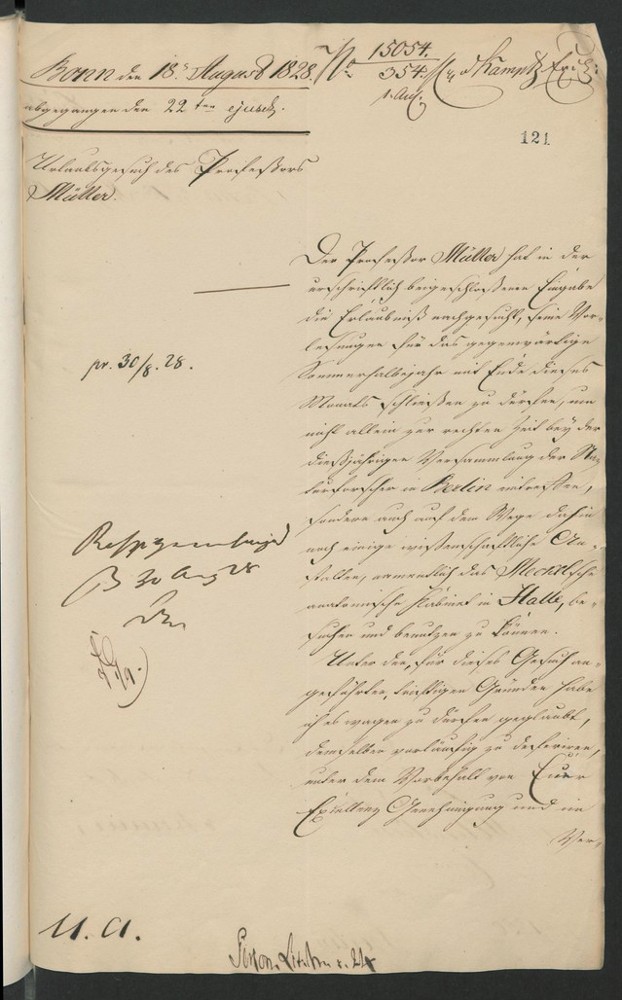 Bonn den 18. August 1828.
No 15054.
354.
1. Aug.
v. Kamptz
abgegangen den 22ten ejusd.
121
Urlaubsgesuch des Professors
Müller.
Der Professor Müller hat in der
urschriftlich beigeschlossenen Eingabe
die Erlaubniß nachgesucht, seine Vor-
lesungen für das gegenwärtige
Sommerhalbejahr mit Ende dieses
Monats schließen zu dürfen, um
nicht allein zur rechten Zeit bey der
dießjährigen Versammlung der Na-
turforscher in Berlin eintreffen,
sondern auch auf dem Wege dahin
noch einige wissenschaftliche An-
stalten, namentlich das Meckelsche
anatomische Kabinet in Halle, be-
suchen und benutzen zu können.
Unter den, für dieses Gesuch an-
geführten, triftigen Gründen habe
ich es wagen zu dürfen geglaubt,
demselben vorläufig zu deferiren,
unter dem Vorbehalt von Euer
Excellenz Genehmigung und in
Ver-
pr. 30/8. 28.
B 30 Aug 28
U. A.